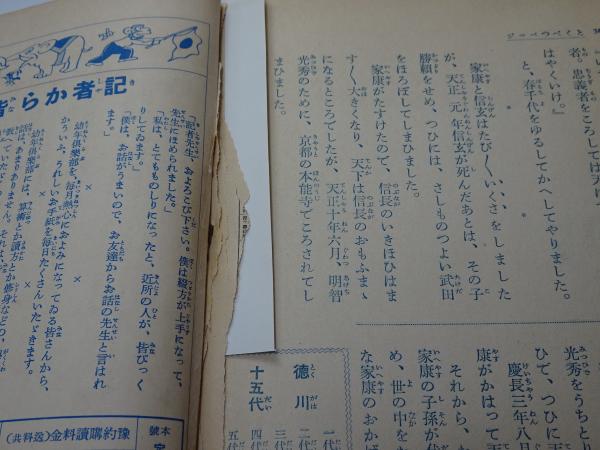 ジッペつべくと
者。忠義者をころしては天に
はやくいけ。』
と、春千代をゆるしてかへしてやりました。
×
家康と信玄はたび〳〵いくさをしました
が、天正元年信玄が死んだあとは、その子
勝頼をせめ、つひには、さしものつよい武田
をほろぼしてしまひました。
家康がたすけたので、信長のいきほひはま
す〳〵大きくなり、天下は信長のおもふまゝ
になるところでしたが、天正十年六月、明智
光秀のために、京都の本能寺でころされてし
まひました。
光秀をうちと
ひて、つひに天
慶長三年八月
康がかはつて天
それから、
家康の子孫が代
め、世の中を
な家康のおかげ
徳川
十五代
一代
二代
三代
四代
五代
記者から皆
『記者先生、およろこび下さい。僕は綴方が上手になつて、
先生にほめられました。』
『私は、とてもものしりになつたと、近所の人が、皆びつく
りしてゐます。』
『僕は、お話がうまいので、お友達からお話の先生と言はれ
ます。』
×
幼年倶樂部を、毎月熱心におよみになつてゐる皆さんから、
かういふ、うれしいお手紙を毎日たくさんいたゞきます。
×
幼年倶樂部には、算術とか讀方とか修身などの、
話は、あまりありません。それは
本號
豫約購讀料金(送料共)